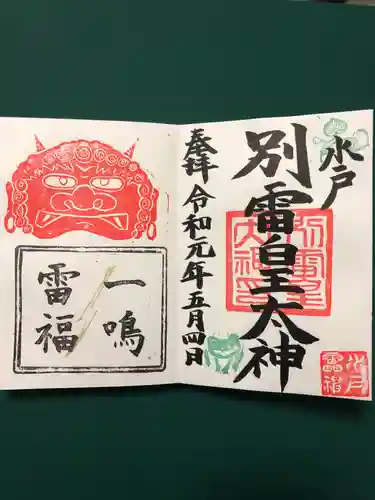 水戸
別雷皇太神
奉拝 令和元年五月四日
一鳴
雷福
別雷皇
太神